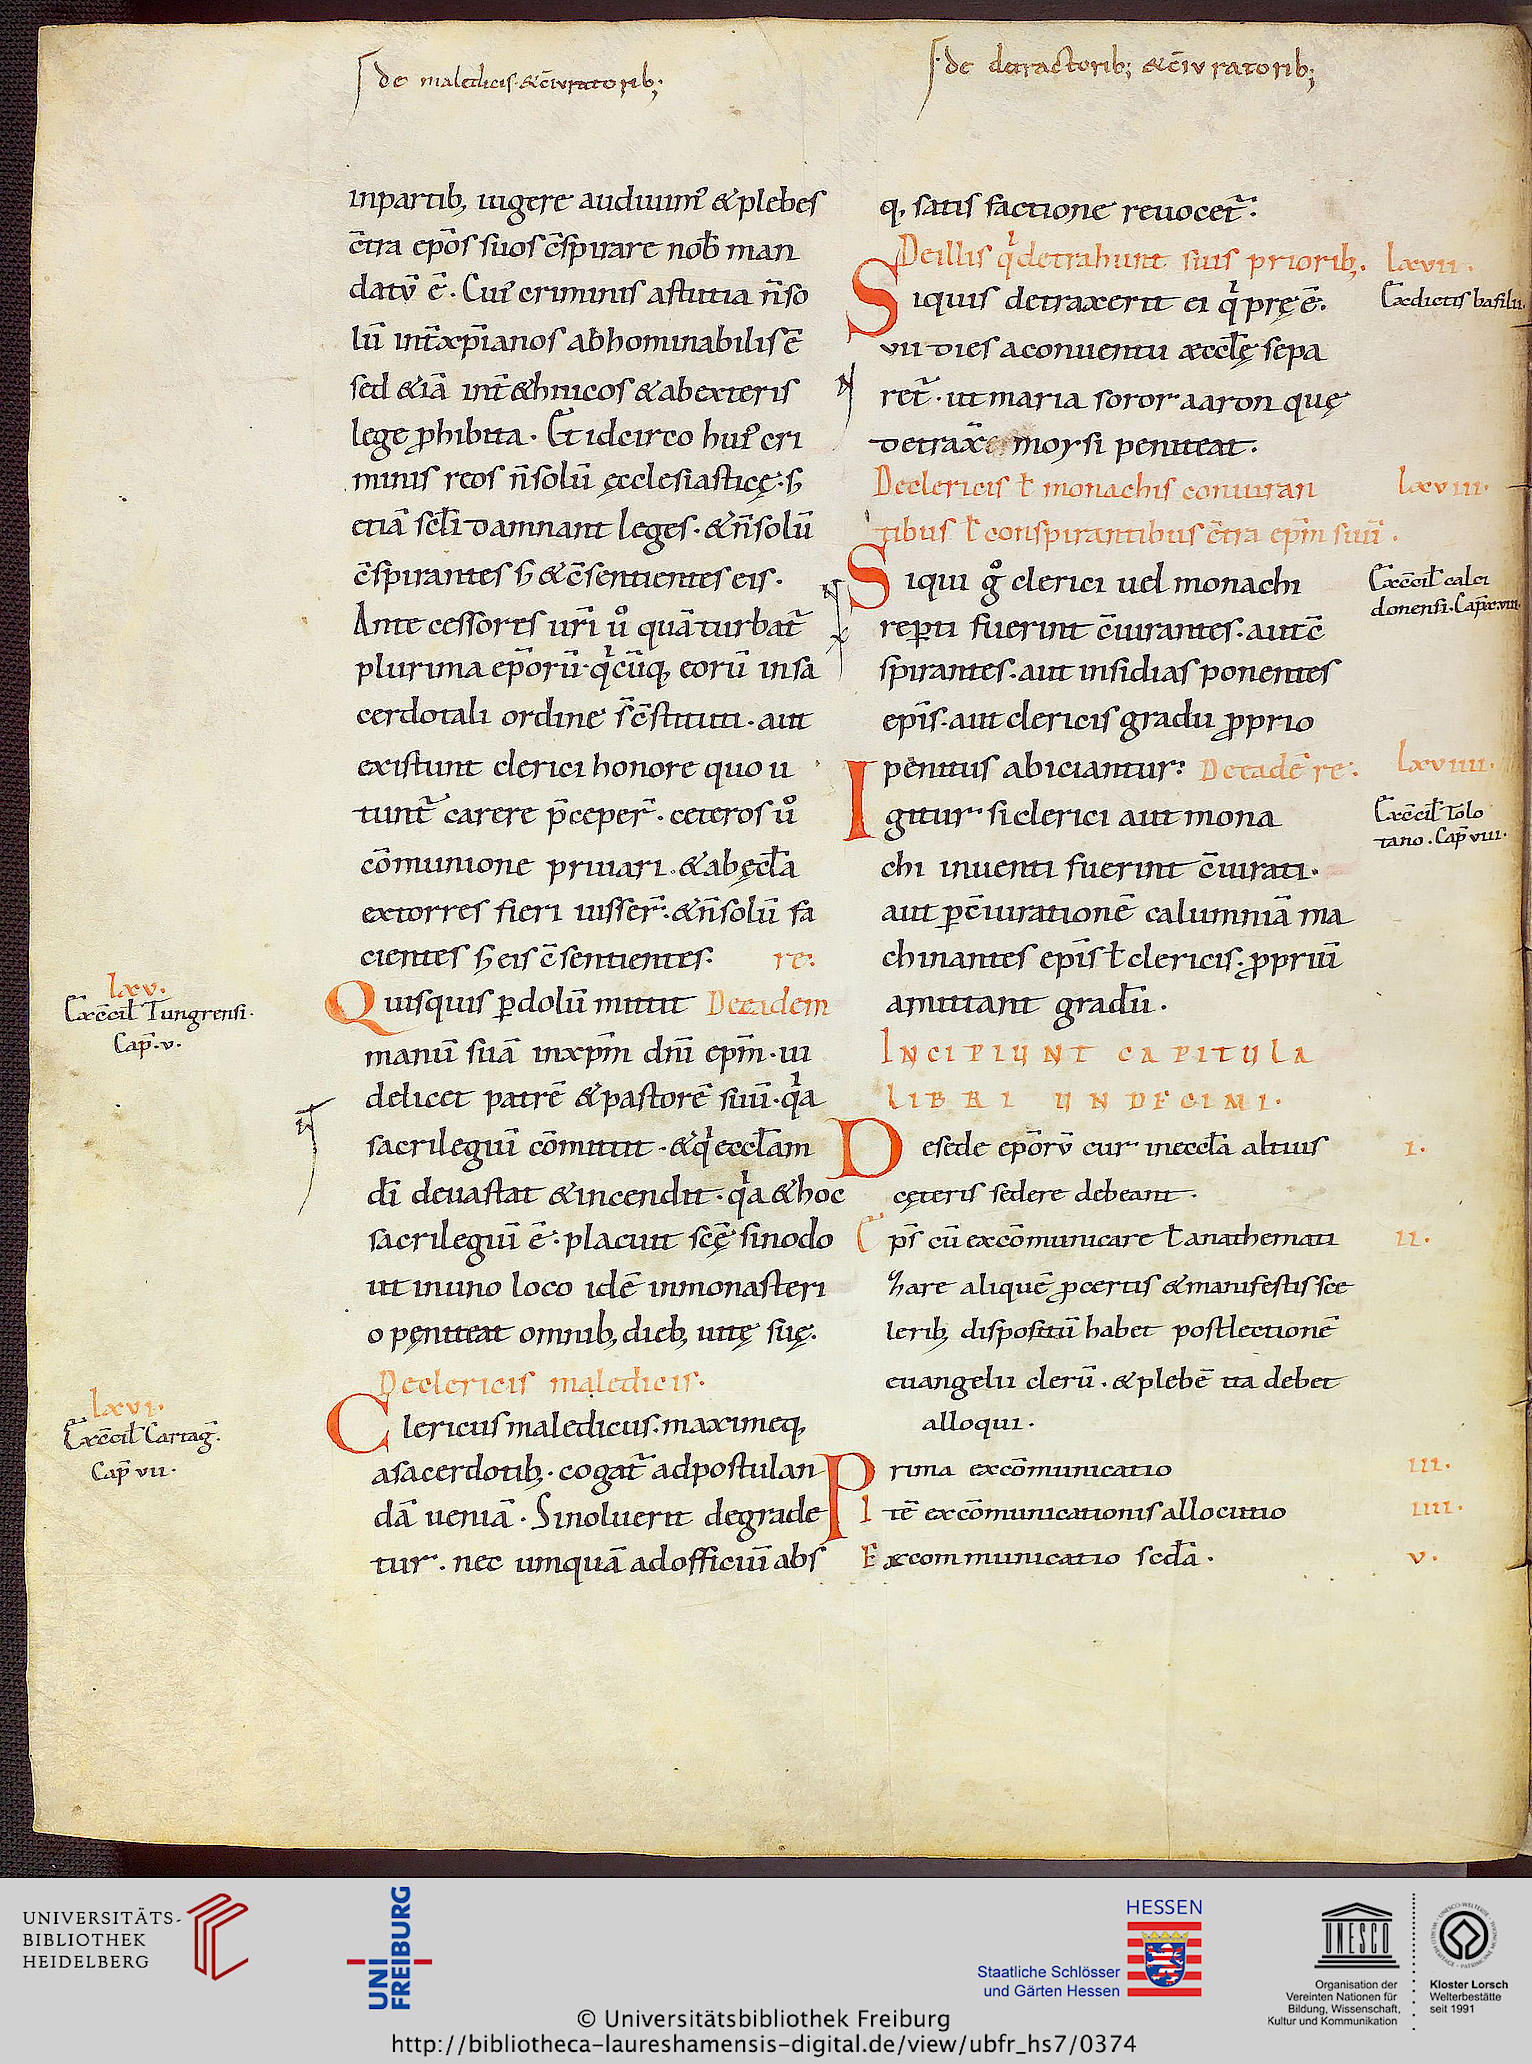 de maledicis · &c̄iuratorib;
de detractorib; &c̄iuratorib;
inpartib; uigere audiuim᾽ & plebes
c̄tra ep̄os suos c̄spirare nob̄ man
datū ē. Cui᾽ criminis astutia n̄ so
lū int̄ xp̄ianos abhominabilis ē
sed & iā int̄ &hnicos & ab exteris
lege ꝓhibita. Et idcirco hui᾽ cri
minis reos n̄ solū ęcclesiasticę · s;
etiā sc̄li damnant leges · & n̄ solū
c̄spirantes s; & c̄sentientes eis.
Antecessores ur̄i u° quā turbat̄
plurima ep̄orū · q̇cūq; eorū in sa
cerdotali ordine s̄ c̄stituti · aut
existunt clerici honore quo u
tunt̄ carere p̄ceper̄ · ceteros u°
cōmunione priuari · & ab ęccl̄a
extorres fieri iusser̄ · & n̄ solū fa
cientes s; eis c̄sentientes. re:
lxv.
Ex c̄cil̄ Tungrensi.
Cap̄ · v.
Quisquis ꝑ dolū mittit De eadem
manū suā in xp̄m dn̄i ep̄m · ui
delicet patrē & pastorē suū · q̇a
sacrilegiū cōmittit · & q̇ eccl̄am
dī deuastat & incendit · q̇a & hoc
sacrilegiū ē · placuit sc̄ę sinodo
ut in uno loco idē in monasteri
o pęniteat omnib; dieb; uitę suę.
De clericis maledicis.
lxvi.
Ex c̄cil̄ Cartaḡ.
Cap̄ vii.
Clericus maledicus · maximeq;
a sacerdotib; · cogat̄ ad postulan
dā ueniā. Si noluerit degrade
tur · nec umquā ad officiū abs
q; satisfactione reuocet̄.
De illis q̇ detrahunt suis priorib;. lxvii.
Ex dictis basilii.
Siquis detraxerit ei q̇ pręē.
vii dies a conuentu æccl̄ę sepa
ret̄ · ut maria soror aaron quę
detrax̄ moysi peniteat.
De clericis ł monachis coniuran lxviii.
tibus ł conspirantibus c̄tra ep̄m suū.
Ex c̄cil̄ calci
donensi · Cap̄ xviii.
Siqui g° clerici uel monachi
reꝑti fuerint c̄iurantes · aut c̄
spirantes · aut insidias ponentes
ep̄is · aut clericis gradu ꝓprio
penitus abiciantur. De eadē re. lxviiii.
Ex c̄cil̄ Tolo
tano. Cap̄ viii.
Igitur si clerici aut mona
chi inuenti fuerint c̄iurati.
aut ꝑ c̄iurationē calumniā ma
chinantes ep̄is ł clericis · ꝓpriū
amittant gradū.
INCIPIUNT CAPITULA
LIBRI UNDECIMI.
De sede ep̄orū cur in eccl̄a altius i.
cęteris sedere debeant.
Ep̄s cū excōmunicare ł anathemati ii.
zare aliquē ꝓ certis & manifestis sce
lerib; dispositū habet post lectionē
euangelii clerū · & plebē ita debet
alloqui.
Prima excōmunicatio iii.
Itē excōmunicationis allocutio iiii.
Excommunicatio scd̄a. v.
UNIVERSITÄTS-
BIBLIOTHEK
HEIDELBERG
UNI
FREIBURG
HESSEN
Staatliche Schlösser
und Gärten Hessen
UNESCO
Organisation der
Vereinten Nationen für
Bildung, Wissenschaft,
Kultur und Kommunikation
Kloster Lorsch
Welterbestätte
seit 1991
© Universitätsbibliothek Freiburg
http://bibliotheca-laureshamensis-digital.de/view/ubfr_hs7/0374